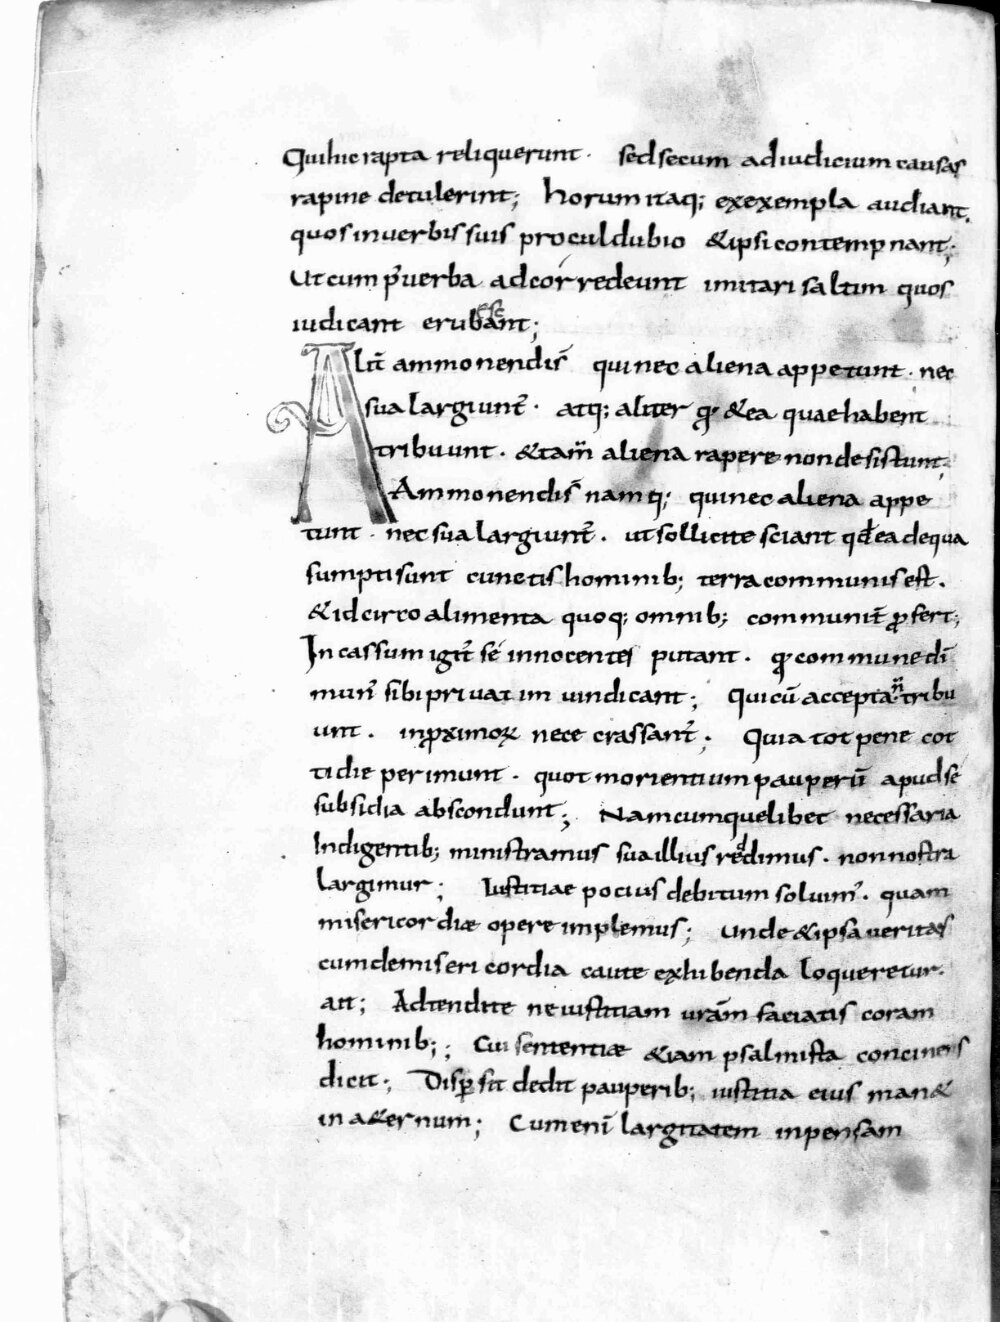 Qui hic rapta reliquerunt· sed secum ad iudicium causas
rapine detulerint; horum itaq; ex exempla audiant.
quos in uerbis suis procul dubio &ipsi contempnant;
Ut cum p̄ uerba ad cór redeunt imitari saltim quos
iudicant erubescant;
Alit̄ ammonendis̄ qui nec aliena appetunt· nec
sua largiunt᷑· atq; aliter qͥ &ea quae habent
tribuunt· &tam̄ aliena rapere non desistunt;
Ammonendis̄ namq; qui nec aliena appe
tunt· nec sua largiunt᷑· ut sollicite sciant qđ ea de qua
sumpti sunt cunctis hominib; terra communis est·
&idcirco alimenta quoq; omnib; communit̄ ꝓfert;
In cassum igit᷑ sé innocentes putant· qͥ commune dī
mun᷒ sibi priuatim uindicant; Qui cū accepta n̄ tribu
unt· in ꝓximoꝝ nece crassant᷑· Quia tot pene cot
tidie perimunt· quot morientium pauperū apud sé
subsidia abscondunt; Nam cum quelibet necessaria
Indigentib; ministramus sua illius reddimus· non nostra
largimur; Iustitiae pocius debitum soluim᷒· quam
misericordiæ opere implemus; Unde &ipsa ueritas
cum de misericordia caute exhibenda loqueretur·
ait; Adtendite ne iustitiam urām faciatis coram
hominib;; Cui sententiæ &iam psalmista concinens
dicit; Disꝑsit dedit pauperib; iustitia eius man&
in a&ernum; Cum enī largitatem inpensam